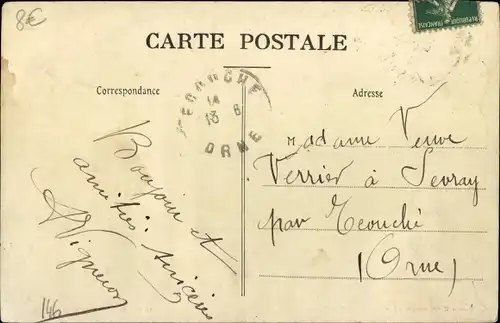 8€
CARTE POSTALE
Correspondance
Adresse
14
13 8
ORNE
Bonjour et
amitiés sincères
Vigneron
Madame Veuve
Verrier à Sevray
par Ecouché
(Orne)
146